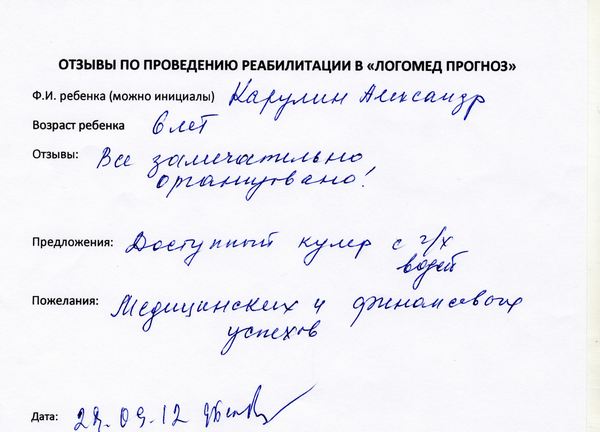 ОТЗЫВЫ ПО ПРОВЕДЕНИЮ РЕАБИЛИТАЦИИ В «ЛОГОМЕД ПРОГНОЗ»
Ф.И. ребенка (можно инициалы) Карулин Александр
Возраст ребенка 6 лет
Отзывы: Все замечательно
организовано!
Предложения: Доступный кулер с г/х
водой
Пожелания: Медицинских и финансовых
успехов
Дата: 29.09.12